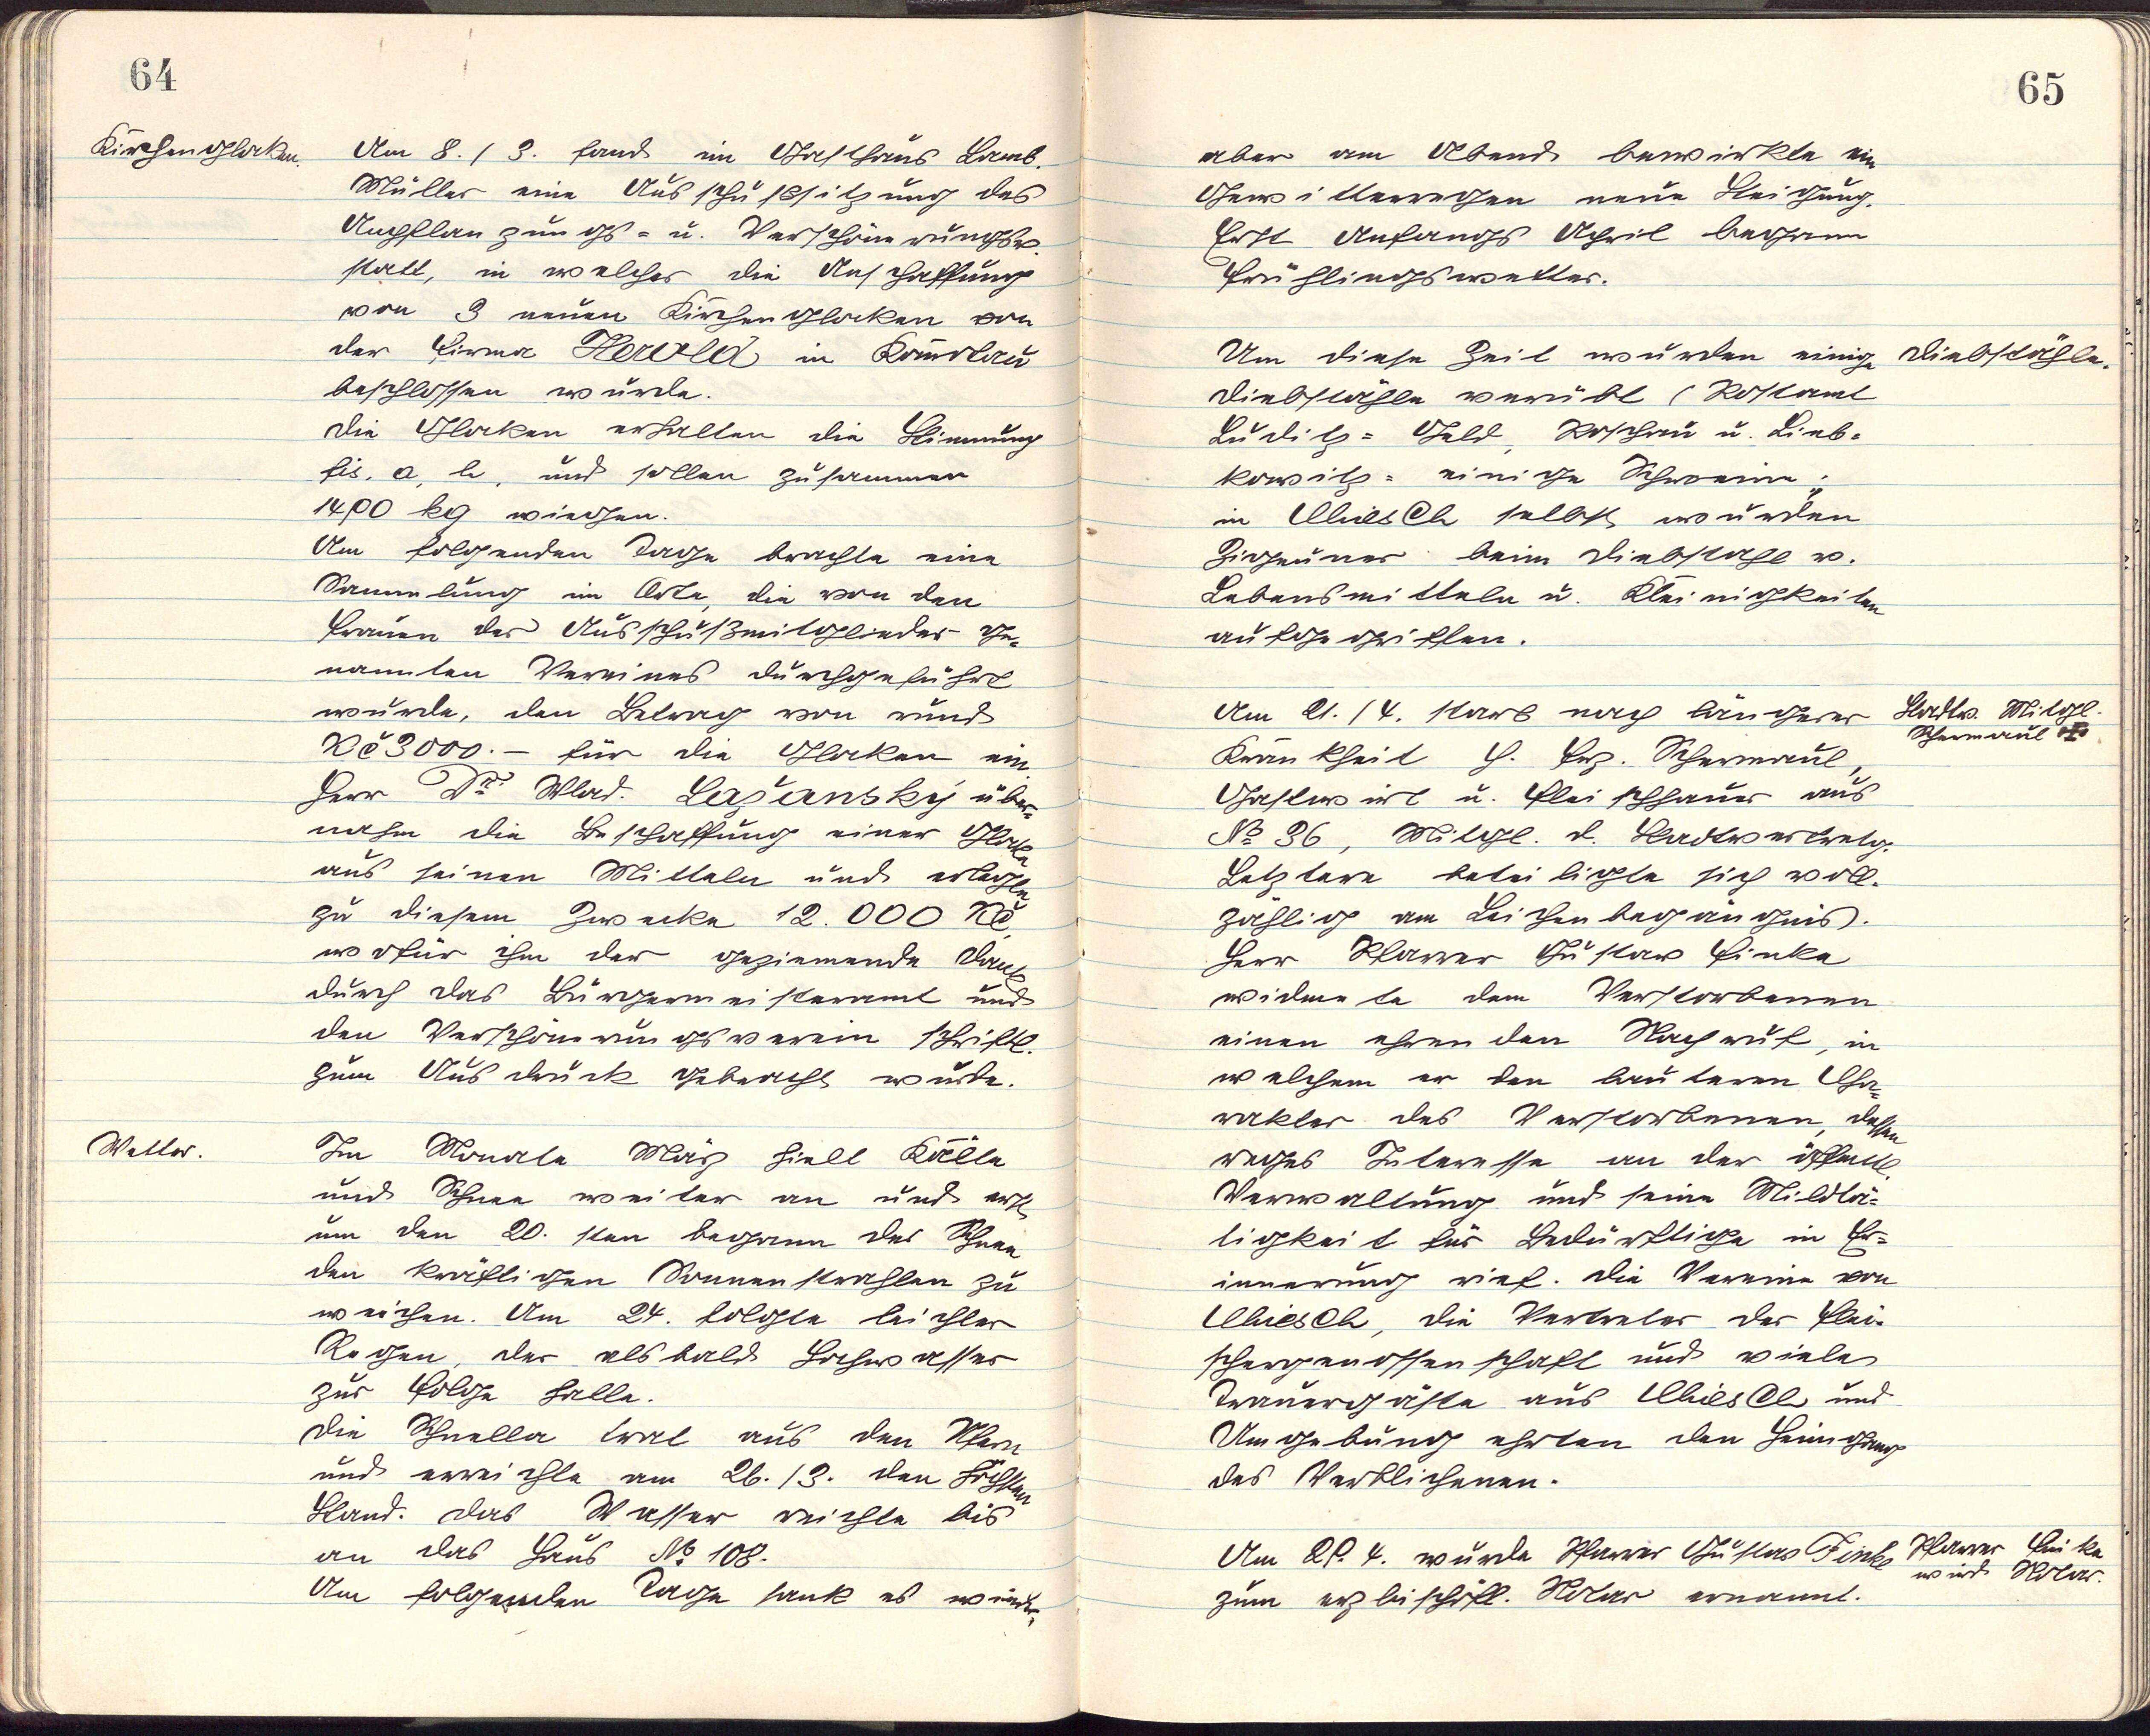 64
Kirchenglocken.
Am 8./3. fand im Gasthaus Lamb.
Müller eine Ausschußsitzung des
Anpflanzungs= u. Verschönerungsv.
statt, in welcher die Anschaffung
von 3 neuen Kirchenglocken von
der Firma Herold in Komotau
beschlossen wurde.
Die Glocken erhalten die Stimmung
fis, a, h, und sollen zusammen
1400 kg wiegen.
Am folgenden Tage brachte eine
Sammlung im Orte, die von den
Frauen der Ausschußmitglieder ge=
nannten Vereines durchgeführt
wurde, den Betrag von rund
Kč 3000.– für die Glocken ein.
Herr Dr. Wlad. Lažanský über=
nahm die Beschaffung einer Glocke
aus seinen Mitteln und erlegte
zu diesem Zwecke 12.000 Kč,
wofür ihm der geziemende Dank
durch das Bürgermeisteramt und
den Verschönerungsverein schriftl.
zum Ausdruck gebracht wurde.
Wetter.
Im Monate März hielt Kälte
und Schnee weiter an und erst
um den 20.sten begann der Schnee
den kräftigen Sonnenstrahlen zu
weichen. Am 24. folgte leichter
Regen, der alsbald Hochwasser
zur Folge hatte.
Die Schnella trat aus den Ufern
und erreichte am 26./3. den höchsten
Stand. Das Wasser reichte bis
an das Haus No 108.
Am folgenden Tage sank es wieder,
65
aber am Abend bewirkte ein
Gewitterregen neue Steigung.
Erst Anfangs April begann
Frühlingswetter.
Um diese Zeit wurden einige
Diebstähle.
Diebstähle verübt (Postamt
Luditz = Geld, Poschau u. Lieb=
kowitz = einige Schweine;
in Chiesch selbst wurden
Zigeuner beim Diebstahl v.
Lebensmitteln u. Kleinigkeiten
aufgegriffen.
Am 21./4. starb nach längerer
Stadtv. Mitgl.
Schermaul ✝
Krankheit H. Frz. Schermaul,
Gastwirt u. Fleischhauer aus
No 36, Mitgl. d. Stadtvertretg.
Letztere beteiligte sich voll=
zählig am Leichenbegängnis.
Herr Pfarrer Gustav Finke
widmete dem Verstorbenen
einen ehrenden Nachruf, in
welchem er den lauteren Cha=
rakter des Verstorbenen, dessen
reges Interesse an der öffentl.
Verwaltung und seine Mildtä=
tigkeit für Bedürftige in Er=
innerung rief. Die Vereine von
Chiesch, die Vertreter der Flei=
schergenossenschaft und viele
Trauergäste aus Chiesch und
Umgebung ehrten den Heimgang
des Verblichenen.
Am 4. wurde Pfarrer Gustav Finke
Pfarrer Finke
wird Notar.
zum erzbischöfl. Notar ernannt.